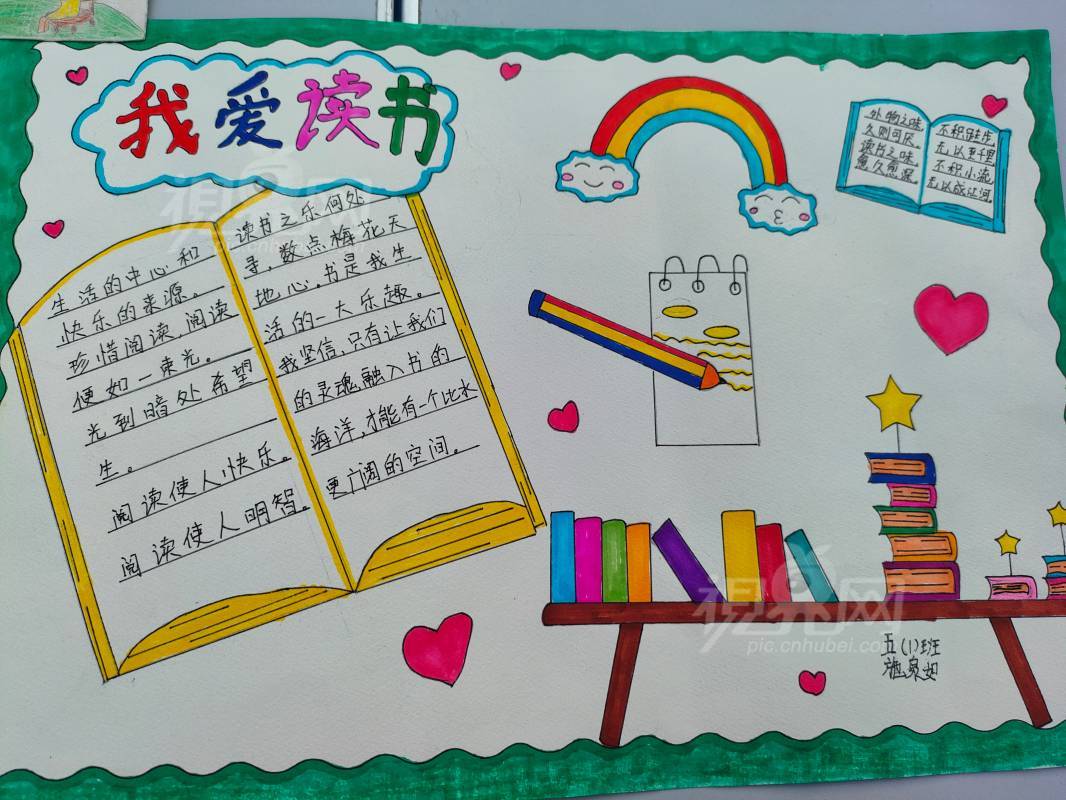 我爱读书
生活的中心和
快乐的来源。
珍惜阅读，阅读
便如一束光。
光到暗处希望
生。
阅读使人快乐。
阅读使人明智。
读书之乐何处
寻，数点梅花天
地心。书是我生
活的一大乐趣。
我坚信，只有让我们
的灵魂融入书的
海洋，才能有一个比水
更广阔的空间。
外物之味，
久则可厌，
读书之味，
愈久愈深。
不积跬步，
无以至千里
不积小流，
无以成江河。
五(1)班
施泉如
視界网
pic.cnhubei.com
視界网